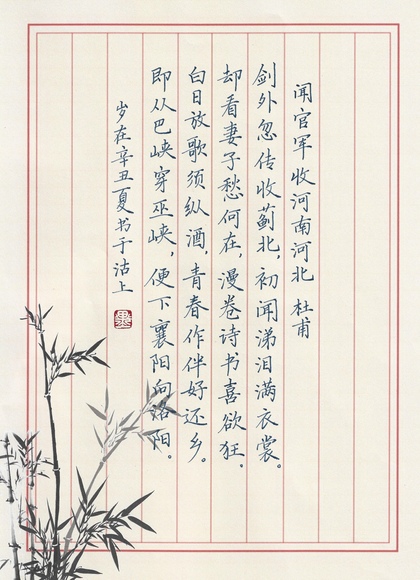 闻官军收河南河北 杜甫
剑外忽传收蓟北,初闻涕泪满衣裳。
却看妻子愁何在,漫卷诗书喜欲狂。
白日放歌须纵酒,青春作伴好还乡。
即从巴峡穿巫峡,便下襄阳向洛阳。
岁在辛丑夏书于沽上